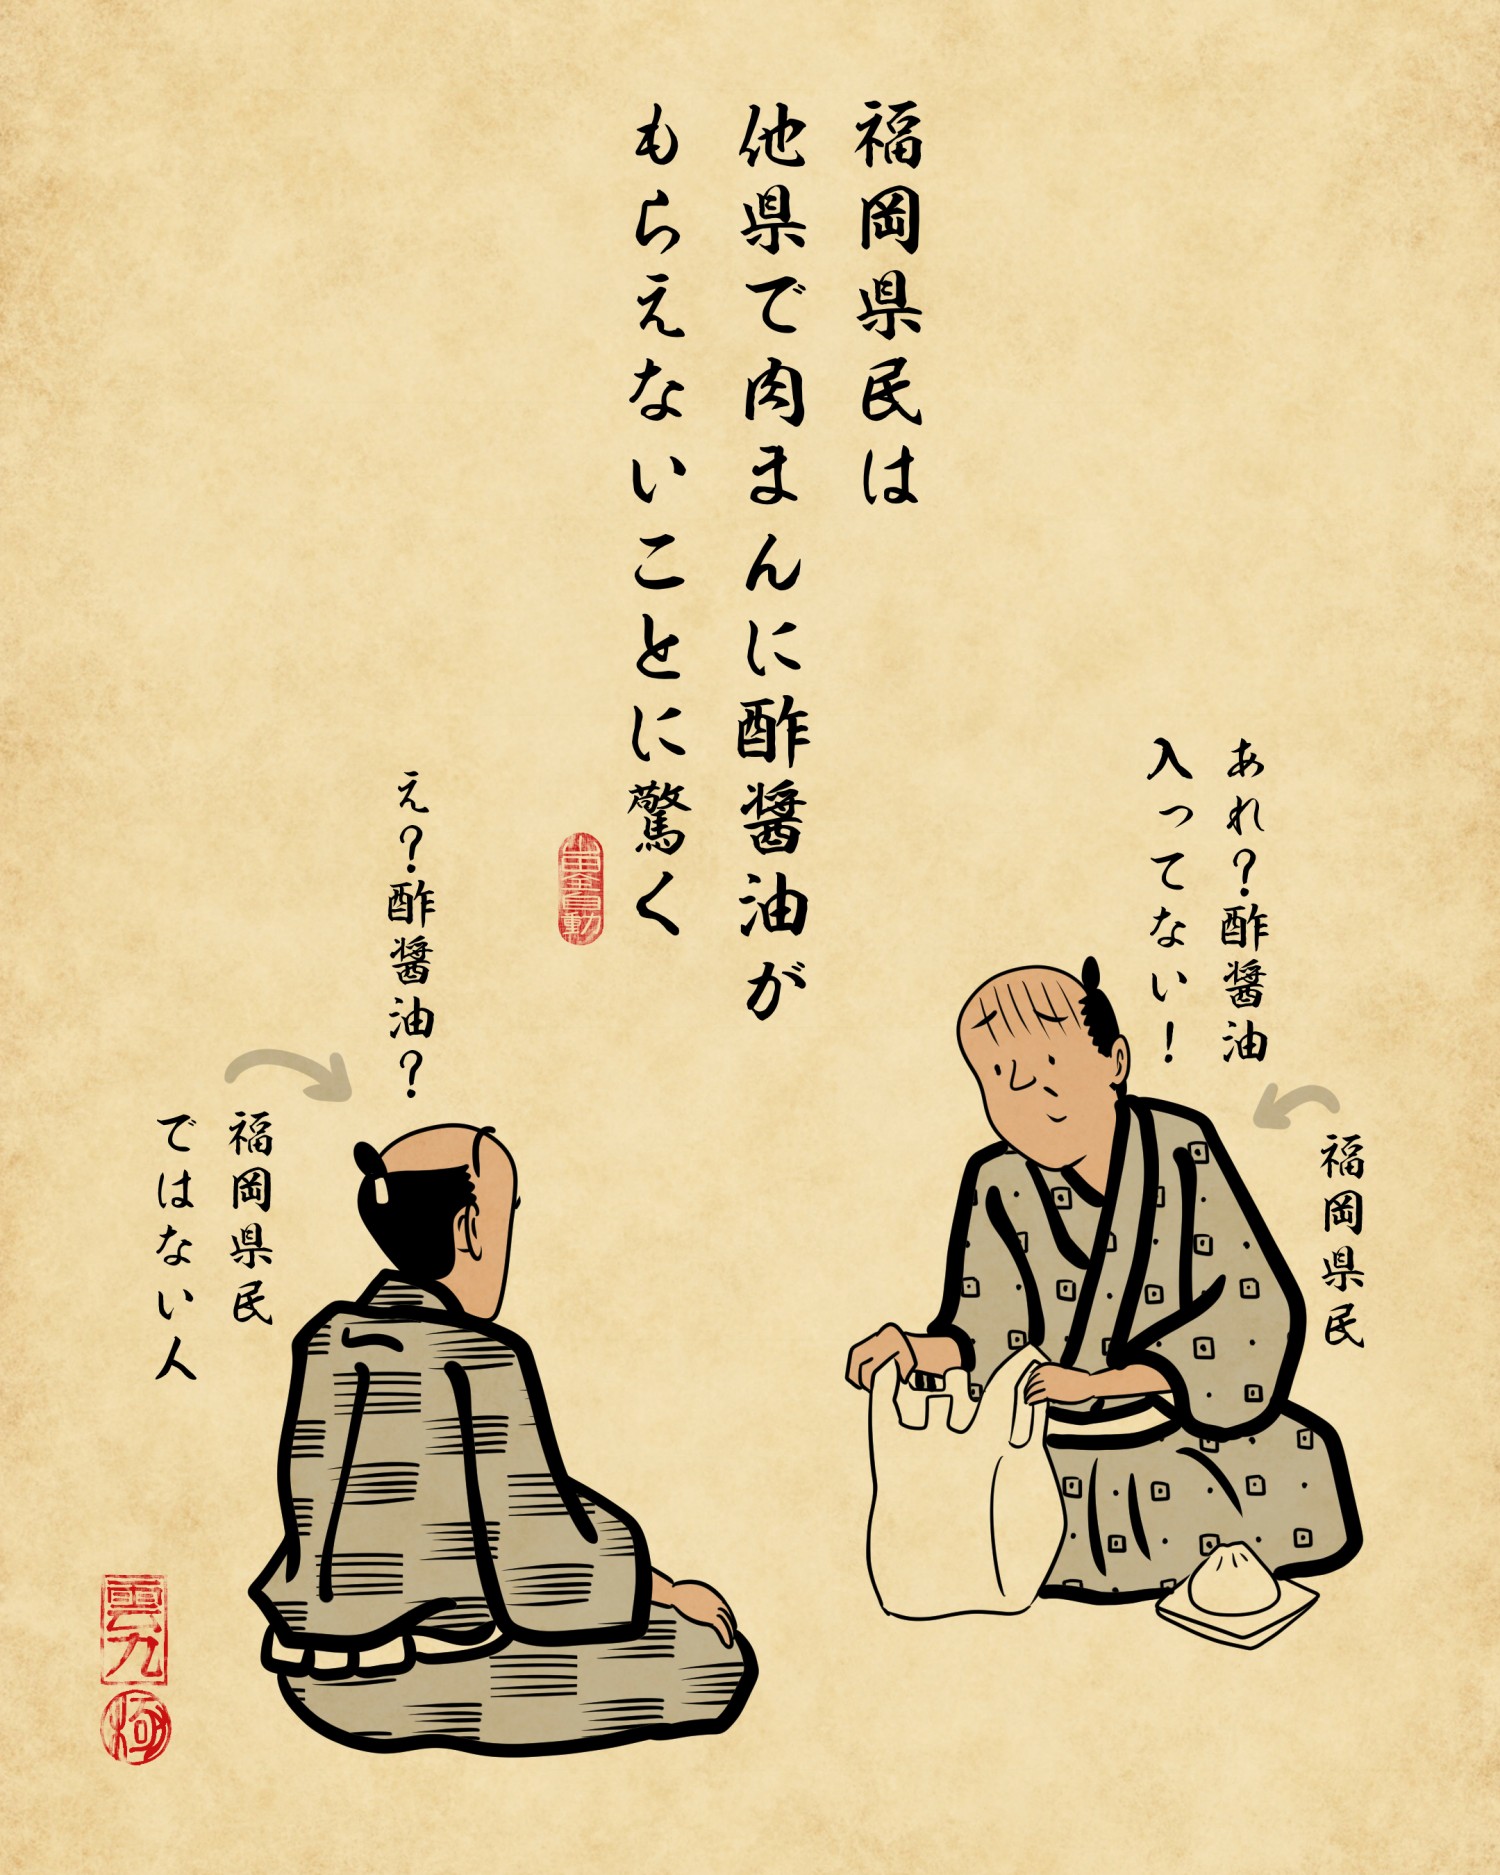 福岡県民は
他県で肉まんに酢醤油が
もらえないことに驚く
あれ？酢醤油
入ってない！
福岡県民
え？酢醤油？
福岡県民
ではない人
山田全自動
雲九
極